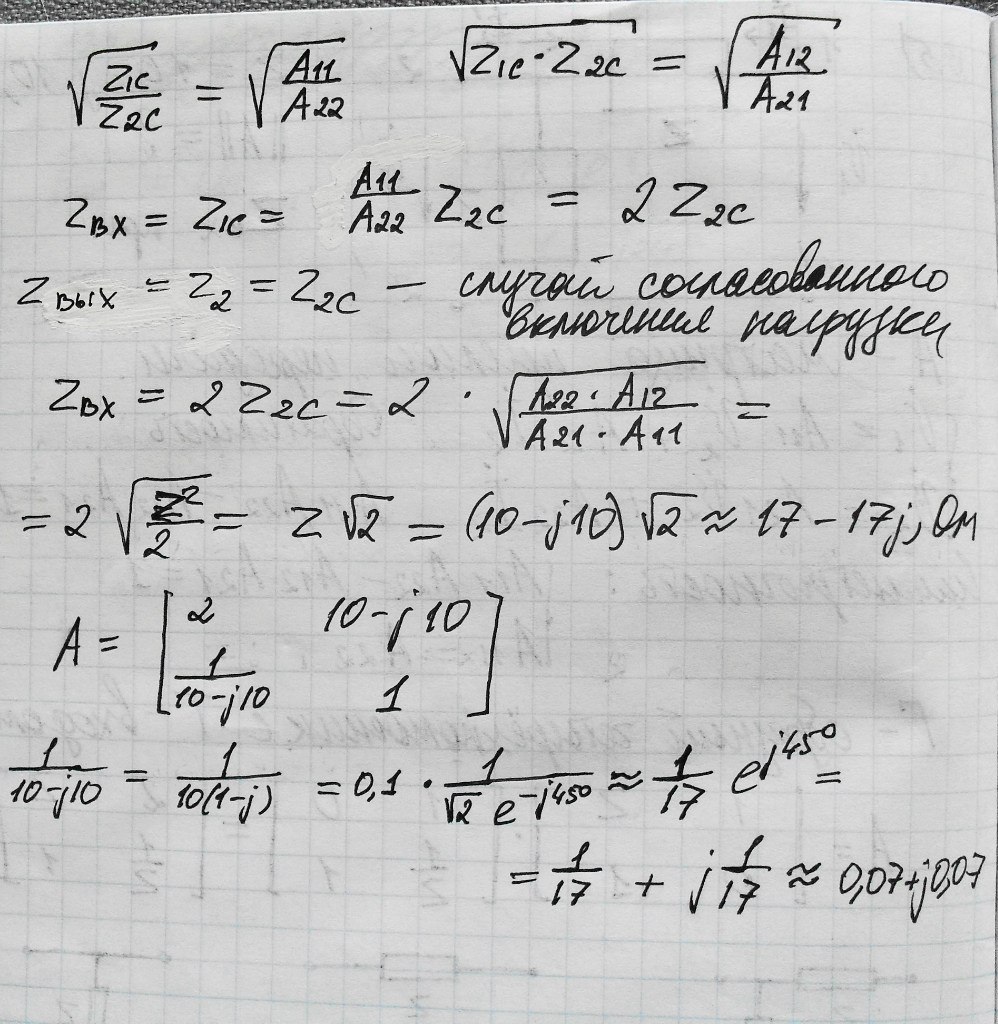 √(Z1C/Z2C) = √(A11/A22)    √(Z1C · Z2C) = √(A12/A21)
ZВХ = Z1C = A11/A22 Z2C = 2 Z2C
ZВЫХ = Z2 = Z2C — случай согласованного
включения нагрузки
ZВХ = 2 Z2C = 2 · √((A22 · A12)/(A21 · A11)) =
= 2 √(Z²/2) = Z √2 = (10-j10) √2 ≈ 17 - 17j, Ом
A = [2    10-j10
1/(10-j10)    1]
1/(10-j10) = 1/(10(1-j)) = 0,1 · 1/(√2 e^(-j45°)) ≈ 1/17 e^(j45°) =
= 1/17 + j 1/17 ≈ 0,07+j0,07